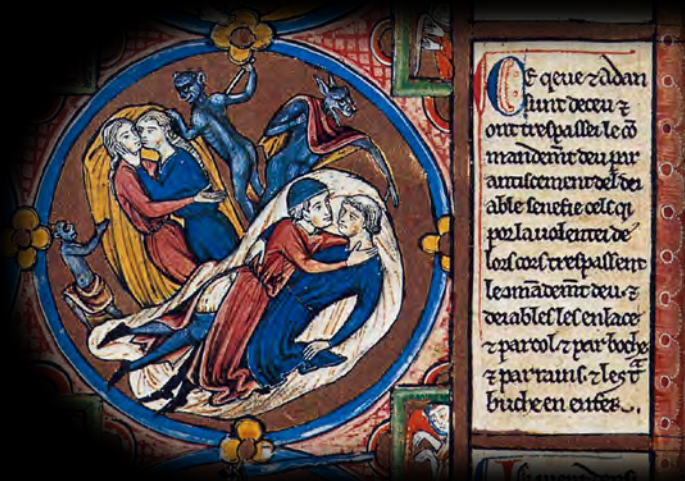 CE qeue ⁊ adan
sunt deceu ⁊
ont trespassei le cō
mandemt deu par
amiscement del dei
able senefie cels qi
por la uolentei de
lor cors trespassent
les mādemt deu ⁊
deiables les enlace
⁊ par col ⁊ par boche
⁊ par rains ⁊ les t
buche en enfer.